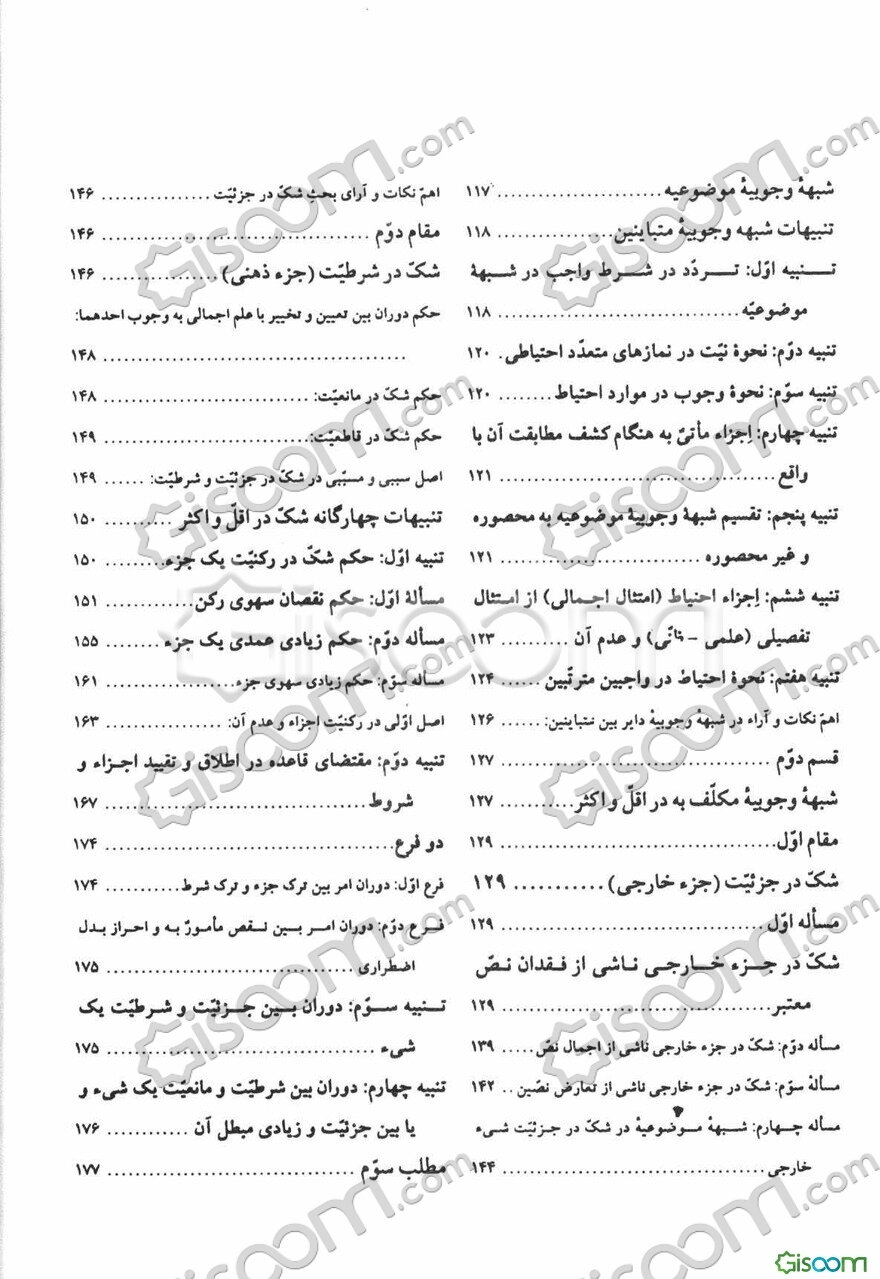 شبههٔ وجوبیهٔ موضوعیه ........................ ۱۱۷
تنبیهات شبهه وجوبیهٔ متباینین ................. ۱۱۸
تنبیه اوّل: تردّد در شرط واجب در شبههٔ
موضوعیّه .................................. ۱۱۸
تنبیه دوّم: نحوهٔ نیّت در نمازهای متعدّد احتیاطی . ۱۲۰
تنبیه سوّم: نحوهٔ وجوب در موارد احتیاط ........ ۱۲۰
تنبیه چهارم: اِجزاء مأتیٌ به هنگام کشف مطابقت آن با
واقع ..................................... ۱۲۱
تنبیه پنجم: تقسیم شبههٔ وجوبیهٔ موضوعیه به محصوره
و غیر محصوره ............................. ۱۲۱
تنبیه ششم: اِجزاء احتیاط (امتثال اجمالی) از امتثال
تفصیلی (علمی - ظنّی) و عدم آن .............. ۱۲۳
تنبیه هفتم: نحوهٔ احتیاط در واجبین مترتّبین ..... ۱۲۴
اهمّ نکات و آراء در شبههٔ وجوبیهٔ دایر بین متباینین: ...... ۱۲۶
قسم دوّم .................................. ۱۲۷
شبههٔ وجوبیهٔ مکلّف به در اقلّ و اکثر ........... ۱۲۷
مقام اوّل .................................. ۱۲۹
شکّ در جزئیّت (جزء خارجی) ........... ۱۲۹
مسأله اوّل ................................. ۱۲۹
شکّ در جزء خارجی ناشی از فقدان نصّ
معتبر .................................... ۱۲۹
مسأله دوّم: شکّ در جزء خارجی ناشی از اجمال نصّ ..... ۱۳۹
مسألهٔ سوّم: شکّ در جزء خارجی ناشی از تعارض نصّین .. ۱۴۲
مسأله چهارم: شبههٔ موضوعیهٔ در شکّ در جزئیّت شیء
خارجی ................................... ۱۴۴
اهمّ نکات و آرای بحثِ شکّ در جزئیّت ................ ۱۴۶
مقام دوّم ................................... ۱۴۶
شکّ در شرطیّت (جزء ذهنی) .................. ۱۴۶
حکم دوران بین تعیین و تخییر با علم اجمالی به وجوب احدهما:
.......................................... ۱۴۸
حکم شکّ در مانعیّت: ............................ ۱۴۸
حکم شکّ در قاطعیّت: ............................ ۱۴۹
اصل سببی و مسبّبی در شکّ در جزئیّت و شرطیّت: ...... ۱۴۹
تنبیهات چهارگانه شکّ در اقلّ و اکثر .......... ۱۵۰
تنبیه اوّل: حکم شکّ در رکنیّت یک جزء ......... ۱۵۰
مسألهٔ اوّل: حکم نقصان سهوی رکن ............. ۱۵۱
مسأله دوّم: حکم زیادی عمدی یک جزء ......... ۱۵۵
مسأله سوّم: حکم زیادی سهوی جزء .................. ۱۶۱
اصل اوّلی در رکنیّت اجزاء و عدم آن: ................. ۱۶۳
تنبیه دوّم: مقتضای قاعده در اطلاق و تقیید اجزاء و
شروط .................................... ۱۶۷
دو فرع .................................... ۱۷۴
فرع اوّل: دوران امر بین ترک جزء و ترک شرط ............ ۱۷۴
فرع دوّم: دوران امر بین نقص مأمورٌ به و احراز بدل
اضطراری ................................. ۱۷۵
تنبیه سوّم: دوران بین جزئیّت و شرطیّت یک
شیء ..................................... ۱۷۵
تنبیه چهارم: دوران بین شرطیّت و مانعیّت یک شیء و
یا بین جزئیّت و زیادی مبطل آن ............. ۱۷۶
مطلب سوّم ................................ ۱۷۷
Gisoom